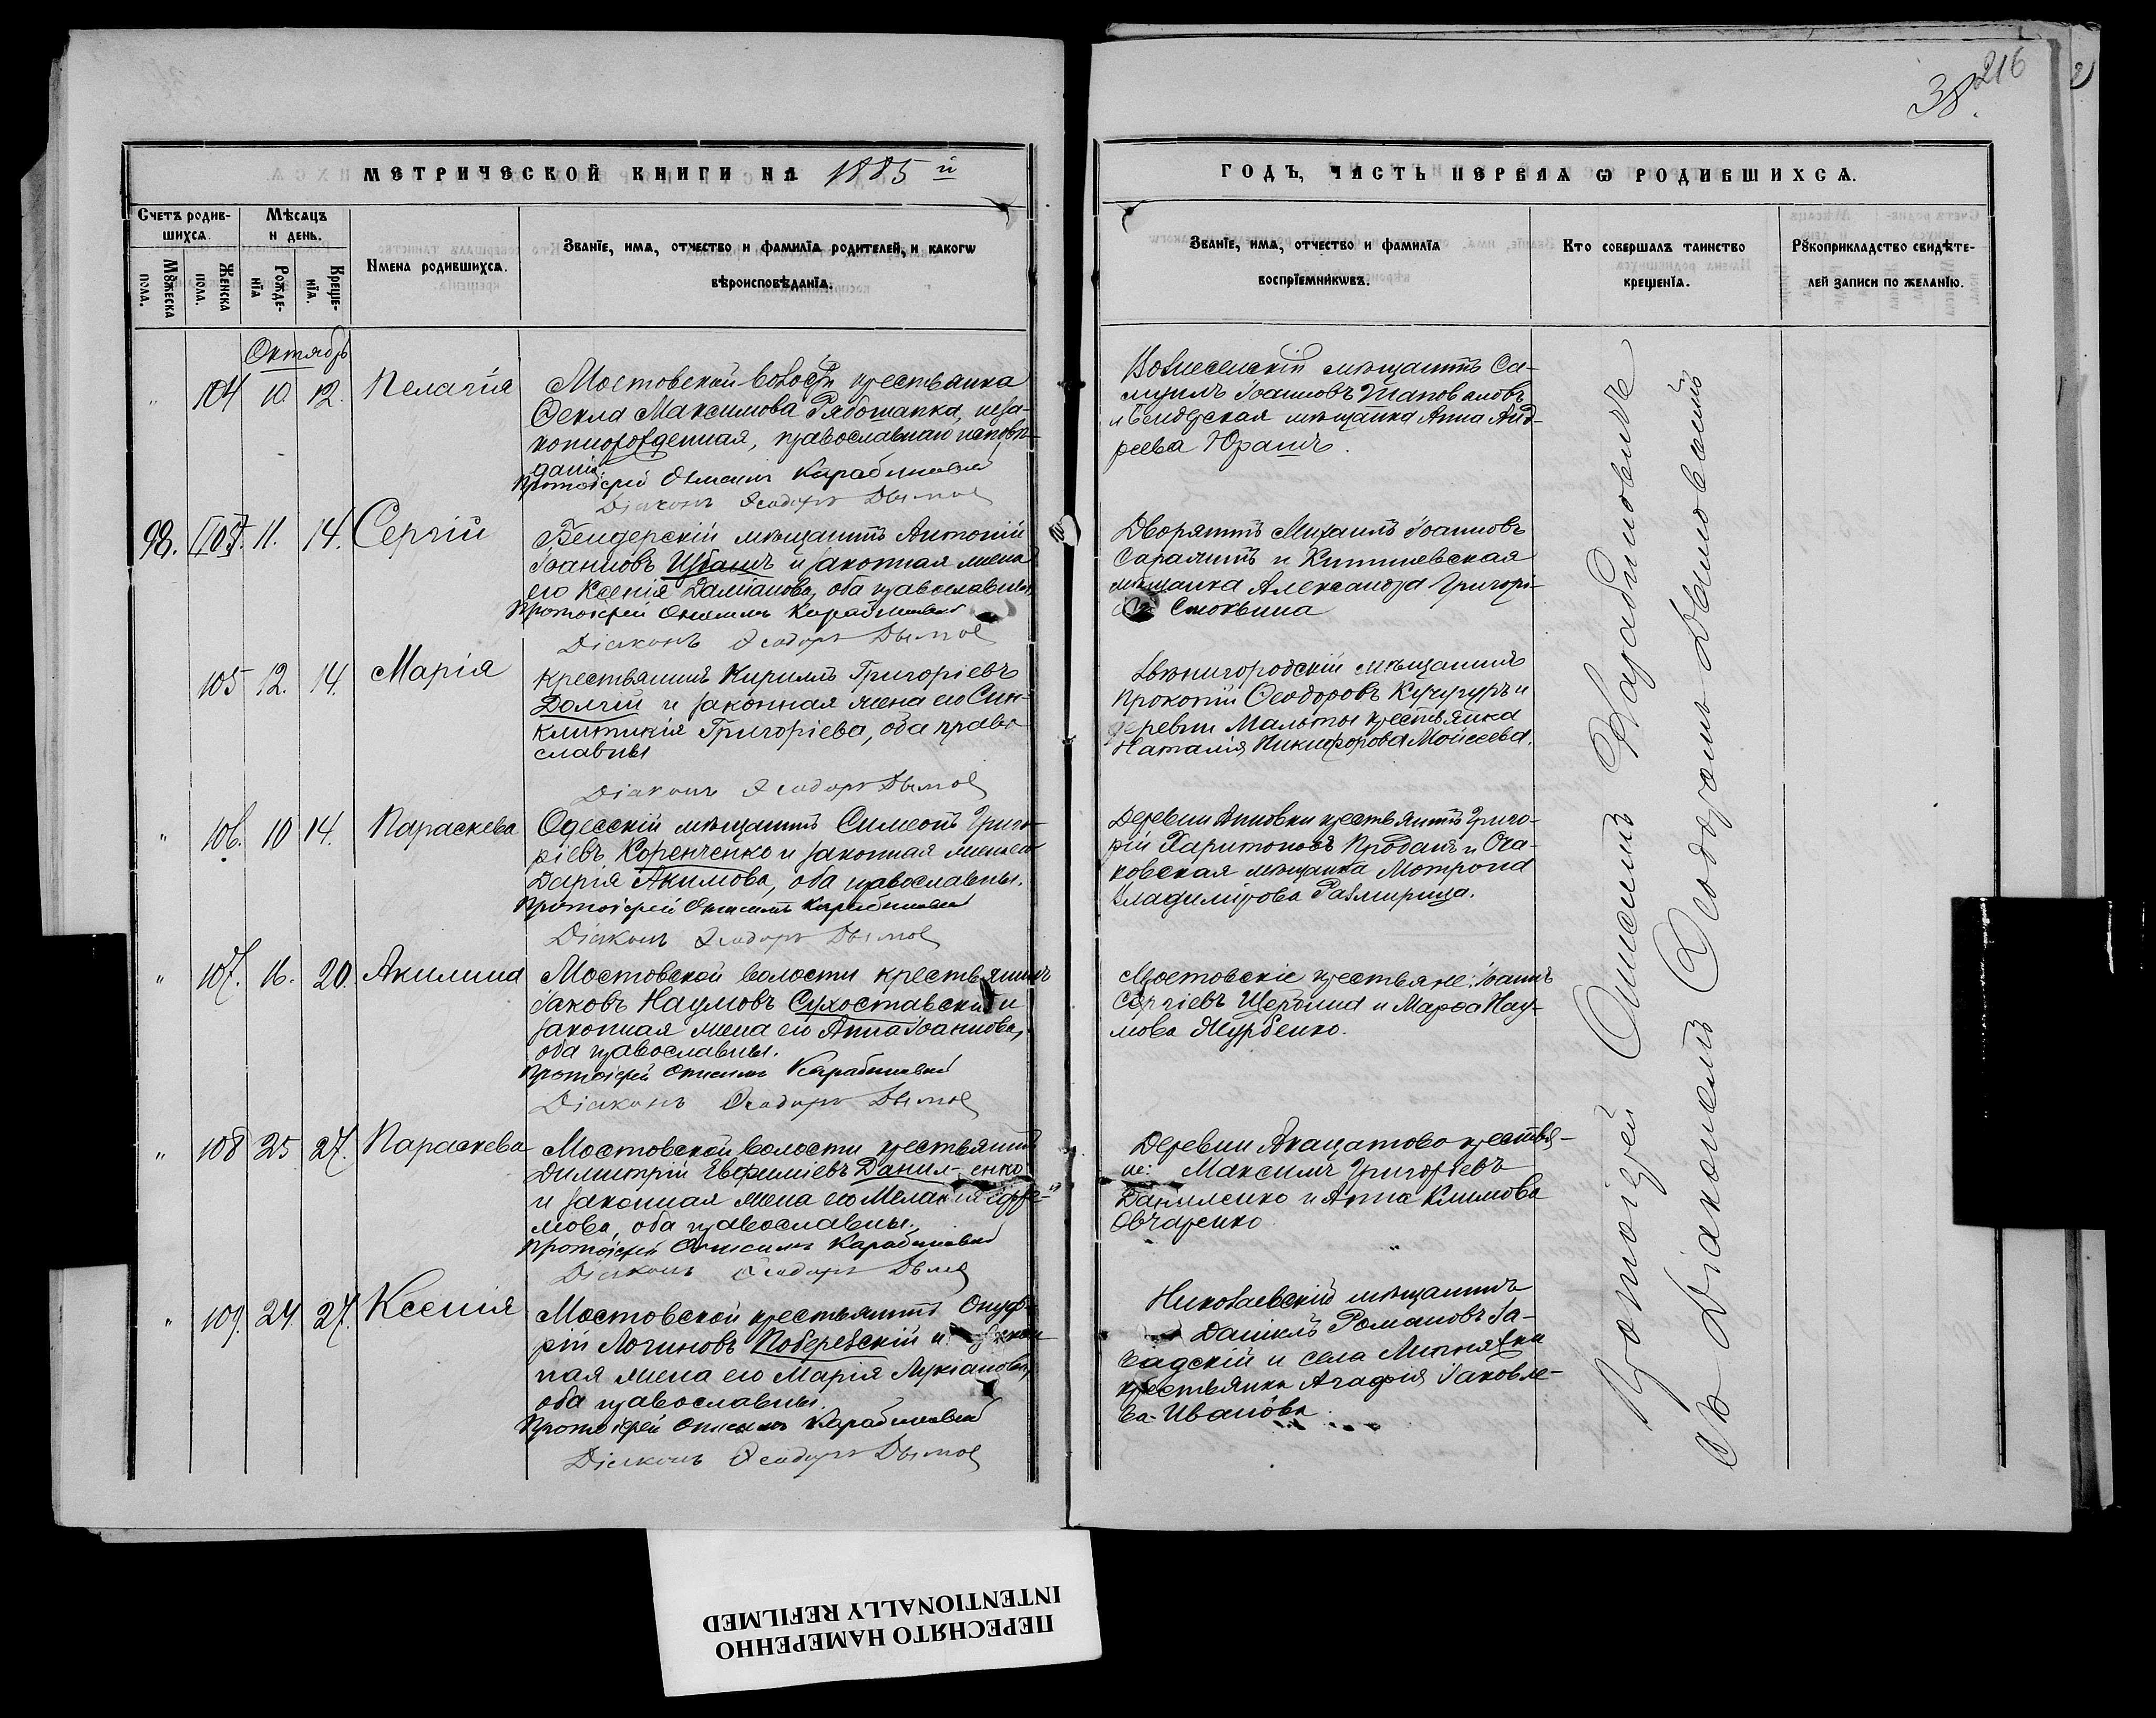 216
38.
МЕТРИЧЕСКОЙ КНИГИ НА 1885 й
Счетъ родив-
шихся.
Мѣсяцъ
и день.
Мужеска
пола.
Женска
пола.
Рожде-
нія
Креще-
нія.
Имена родившихся.
Званіе, имя, отчество и фамилія родителей, и какогѡ
вѣроисповѣданія.
Октябрь
" 104 10. 12. Пелагія
Мостовской волости крестьянка
Ѳекла Максимова Рябошапка, неза-
коннорожденная, православнаго исповѣ-
данія.
Протоіерей Онисимъ
Діаконъ Ѳеодоръ
98. 11. 14. Сергій
Бендерскій мѣщанинъ Антоній
Іоанновъ и законная жена
его Ксенія Даміанова, оба православны
Протоіерей Онисимъ
Діаконъ Ѳеодоръ
105 12. 14. Марія
Крестьянинъ Кириллъ Григоріевъ
Долгій и законная жена его Син-
клитикія Григоріева, оба право-
славны
Діаконъ Ѳеодоръ
" 106. 10 14. Параскева
Одесскій мѣщанинъ Симеонъ Григо-
ріевъ Коренченко и законная жена его
Дарія Акимова, оба православны.
Протоіерей Онисимъ
Діаконъ Ѳеодоръ
" 107. 16. 20. Акилина
Мостовской волости крестьянинъ
Іаковъ Наумовъ Сухоставскій и
законная жена его Анна Іоаннова,
оба православны.
Протоіерей Онисимъ
Діаконъ Ѳеодоръ
" 108 25 27. Параскева
Мостовской волости крестьянинъ
Димитрій Евфиміевъ Данил-енко
и законная жена его Меланія Ефре-
мова, оба православны.
Протоіерей Онисимъ
Діаконъ Ѳеодоръ
" 109. 24. 27. Ксенія
Мостовской крестьянинъ Онуф-
рій Логиновъ Побережскій и закон-
ная жена его Марія Лукіанова,
оба православны.
Протоіерей Онисимъ
Діаконъ Ѳеодоръ
ГОДЪ, ЧАСТЬ ПЕРВАЯ Ѡ РОДИВШИХСЯ.
Званіе, имя, отчество и фамилія
воспріемникѡвъ.
Кто совершалъ таинство
крещенія.
Рукоприкладство свидѣте-
лей записи по желанію.
Вознесенскій мѣщанинъ Са-
муилъ Іоанновъ Шаповаловъ
и Бендерская мѣщанка Анна Анд-
реева Юрашъ.
Дворянинъ Михаилъ Іоанновъ
и Кишиневская
мѣщанка Александра Григорі-
ева
Звенигородскій мѣщанинъ
Прокопій Ѳеодоровъ Кучугуръ и
деревни крестьянка
Наталія Никифорова Моисеева.
Деревни Анновки крестьянинъ Григо-
рій Харитоновъ Проданъ и Оча-
ковская мѣщанка Мотрона
Владимірова Размирица.
Мостовскіе крестьяне: Іоаннъ
Сергіевъ Щербина и Марѳа Нау-
мова
Деревни Акацатово крестья-
не: Максимъ Григоріевъ
Даниленко и Анна Климова
Овчаренко
Николаевскій мѣщанинъ
Даніилъ Романовъ За-
вадскій и села
крестьянка Агафія Іаковле-
ва Иванова.
Протоіерей Онисимъ
съ Діакономъ Ѳеодоромъ
ПЕРЕСНЯТО НАМЕРЕННО
INTENTIONALLY REFILMED